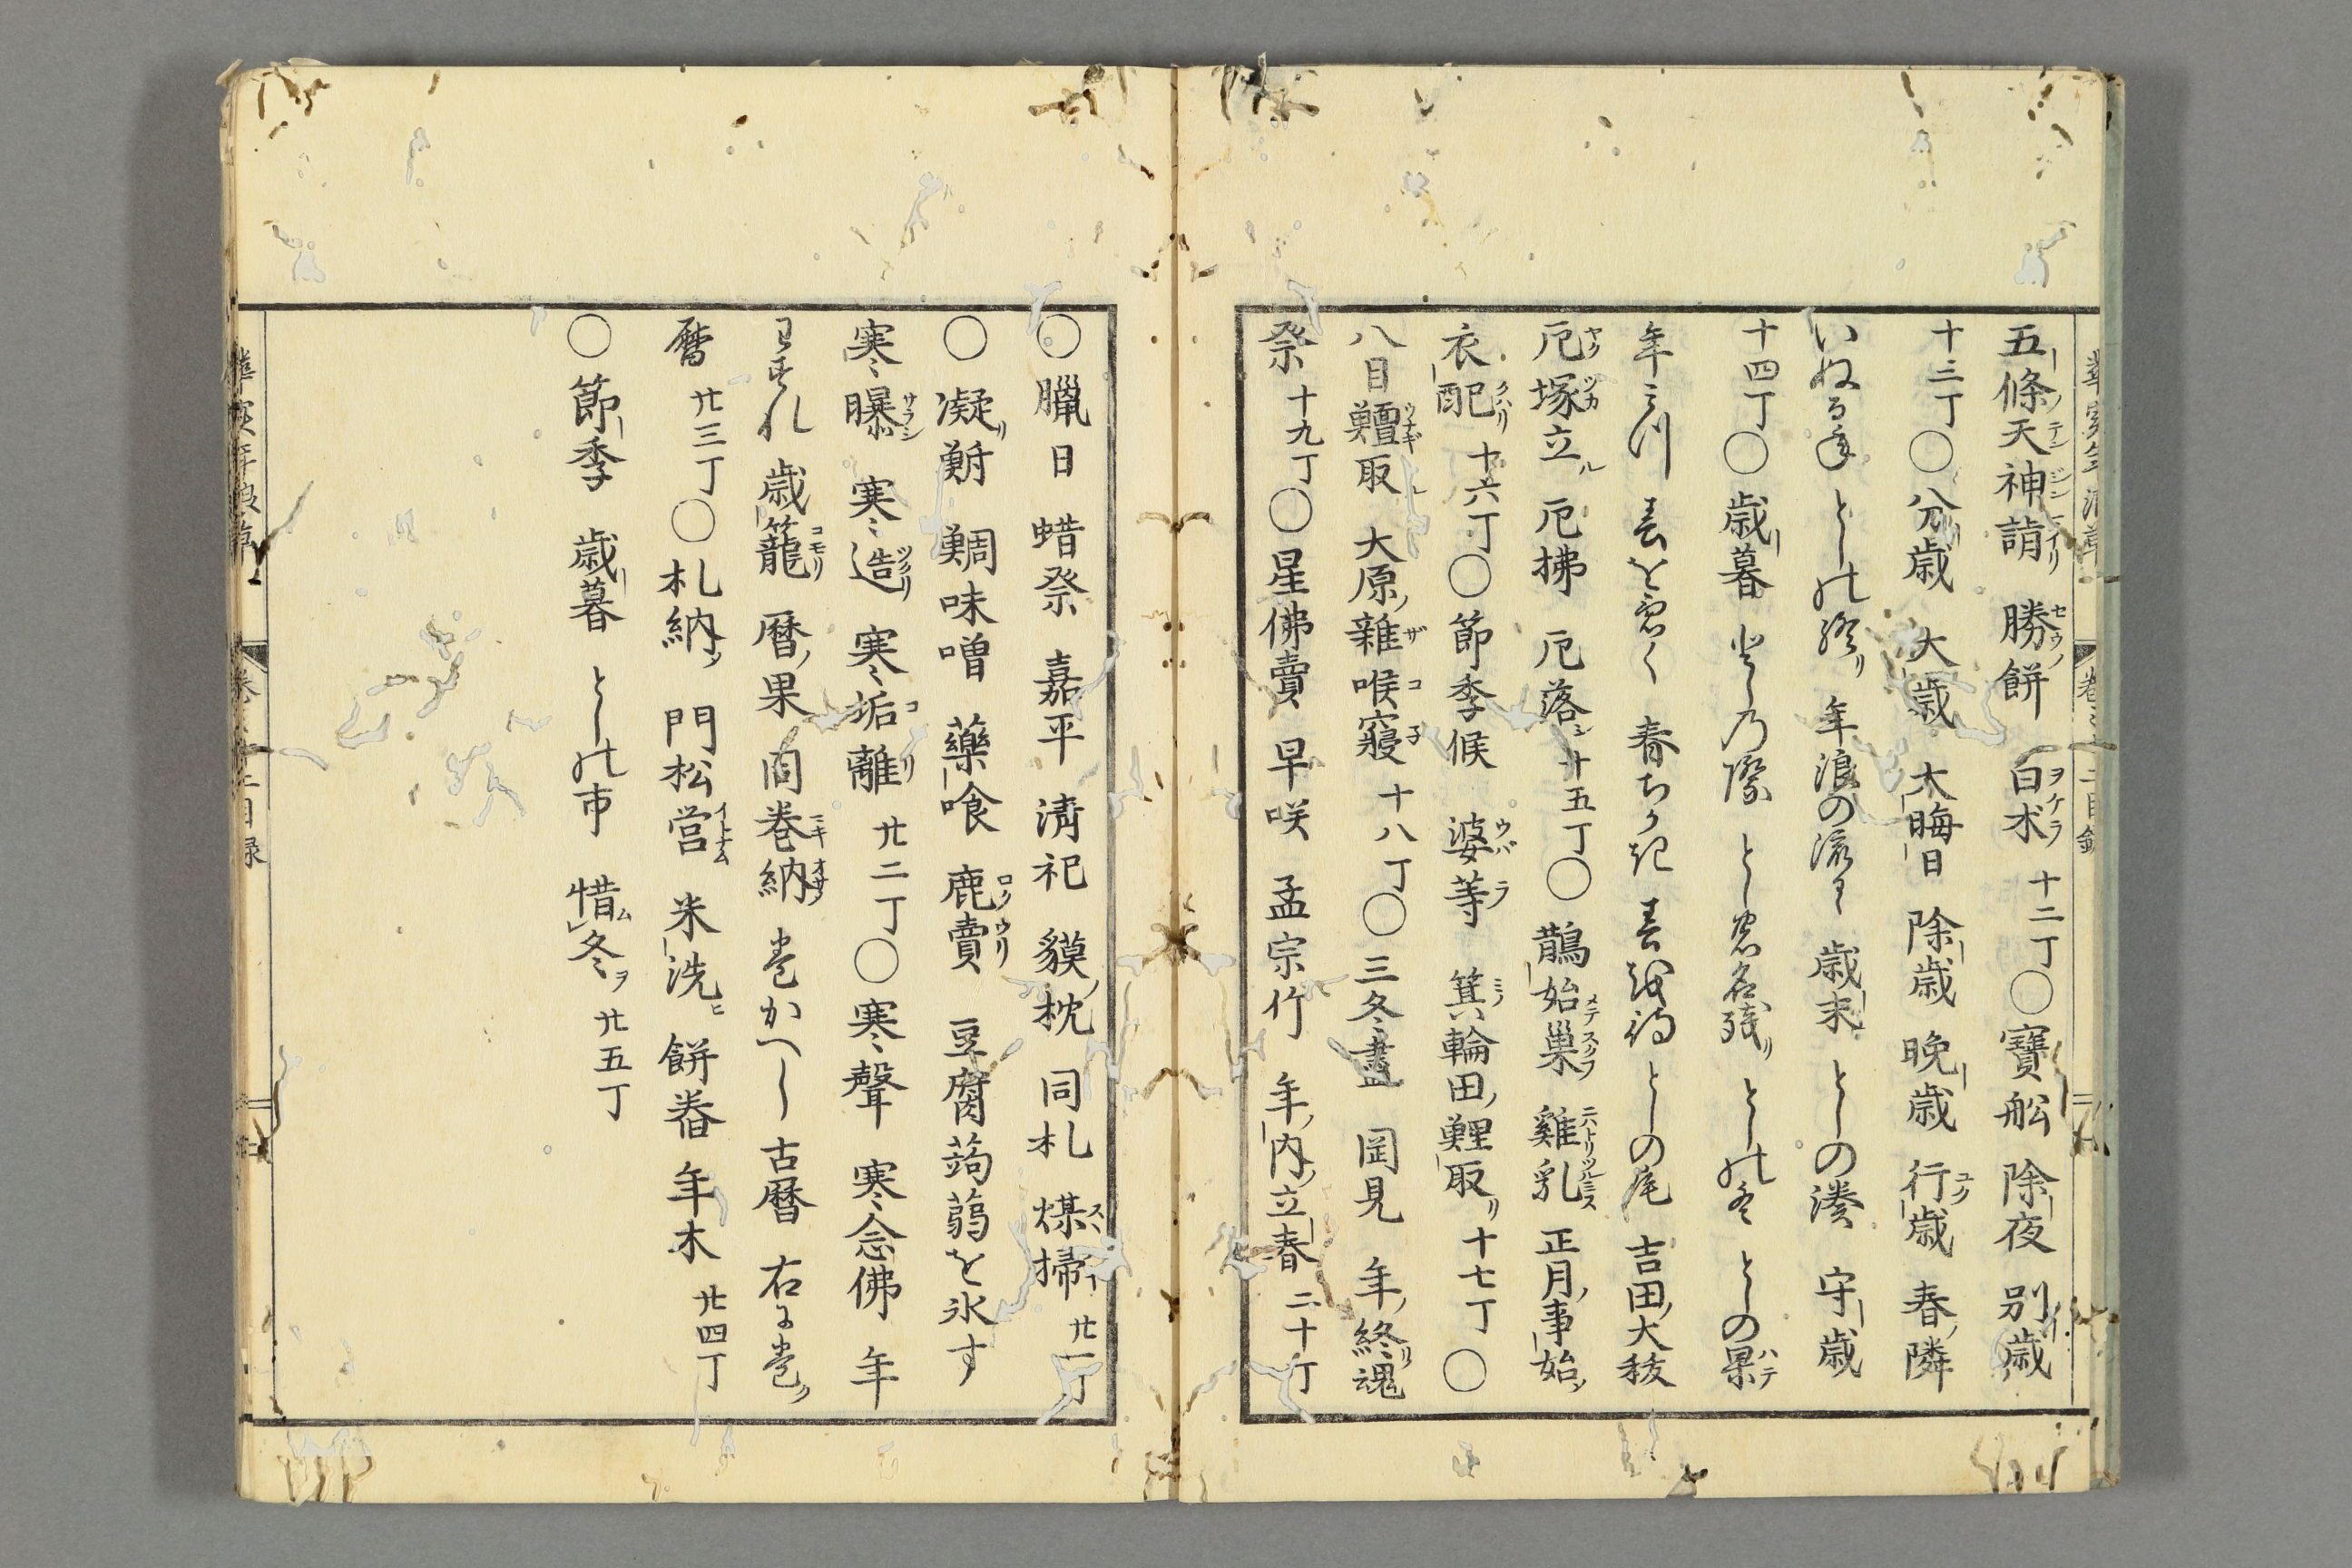 五條天神詣　勝餅　白朮　十二丁〇寶舩　除夜　別歳
十三丁〇分歳　大歳　大晦日　除歳　晩歳　行歳　春隣
いぬる年　としの終　年浪の流るゝ　歳末　としの湊　守歳
十四丁〇歳暮　年の際　とし名残　としの冬　としの果
年こし　春を　く　春ちかき　春を待　としの尾　吉田大秡
厄塚立　厄拂　厄落　十五丁〇鵲始巣　雞乳　正月事始
衣配　十六丁〇節季候　婆等　箕輪田鯉取　十七丁〇
八日鱣取　大原雜喉寢　十八丁〇三冬盡　岡見　年終魂
祭　十九丁〇星佛賣　早咲　孟宗竹　年内立春　二十丁
華実年浪草　巻之十二目録
〇臘日　蜡祭　嘉平　淸祀　貘枕　同札　煤掃　廿一丁
〇凝鮒　鯛味噌　藥喰　鹿賣　豆腐蒟蒻を氷す
寒曝　寒造　寒垢離　廿二丁〇寒聲　寒念佛　年
わすれ　歳籠　暦果　同巻納　巻かへし　古暦　右に巻
暦　廿三丁〇札納　門松営　米洗　餅舂　年木　廿四丁
〇節季　歳暮　としの市　惜冬　廿五丁